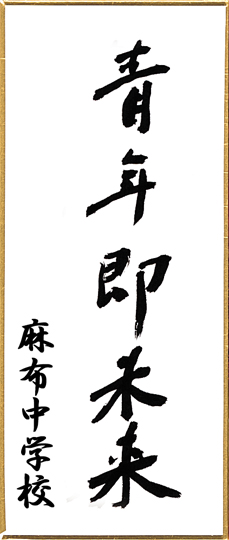 青年即未来
麻布中学校